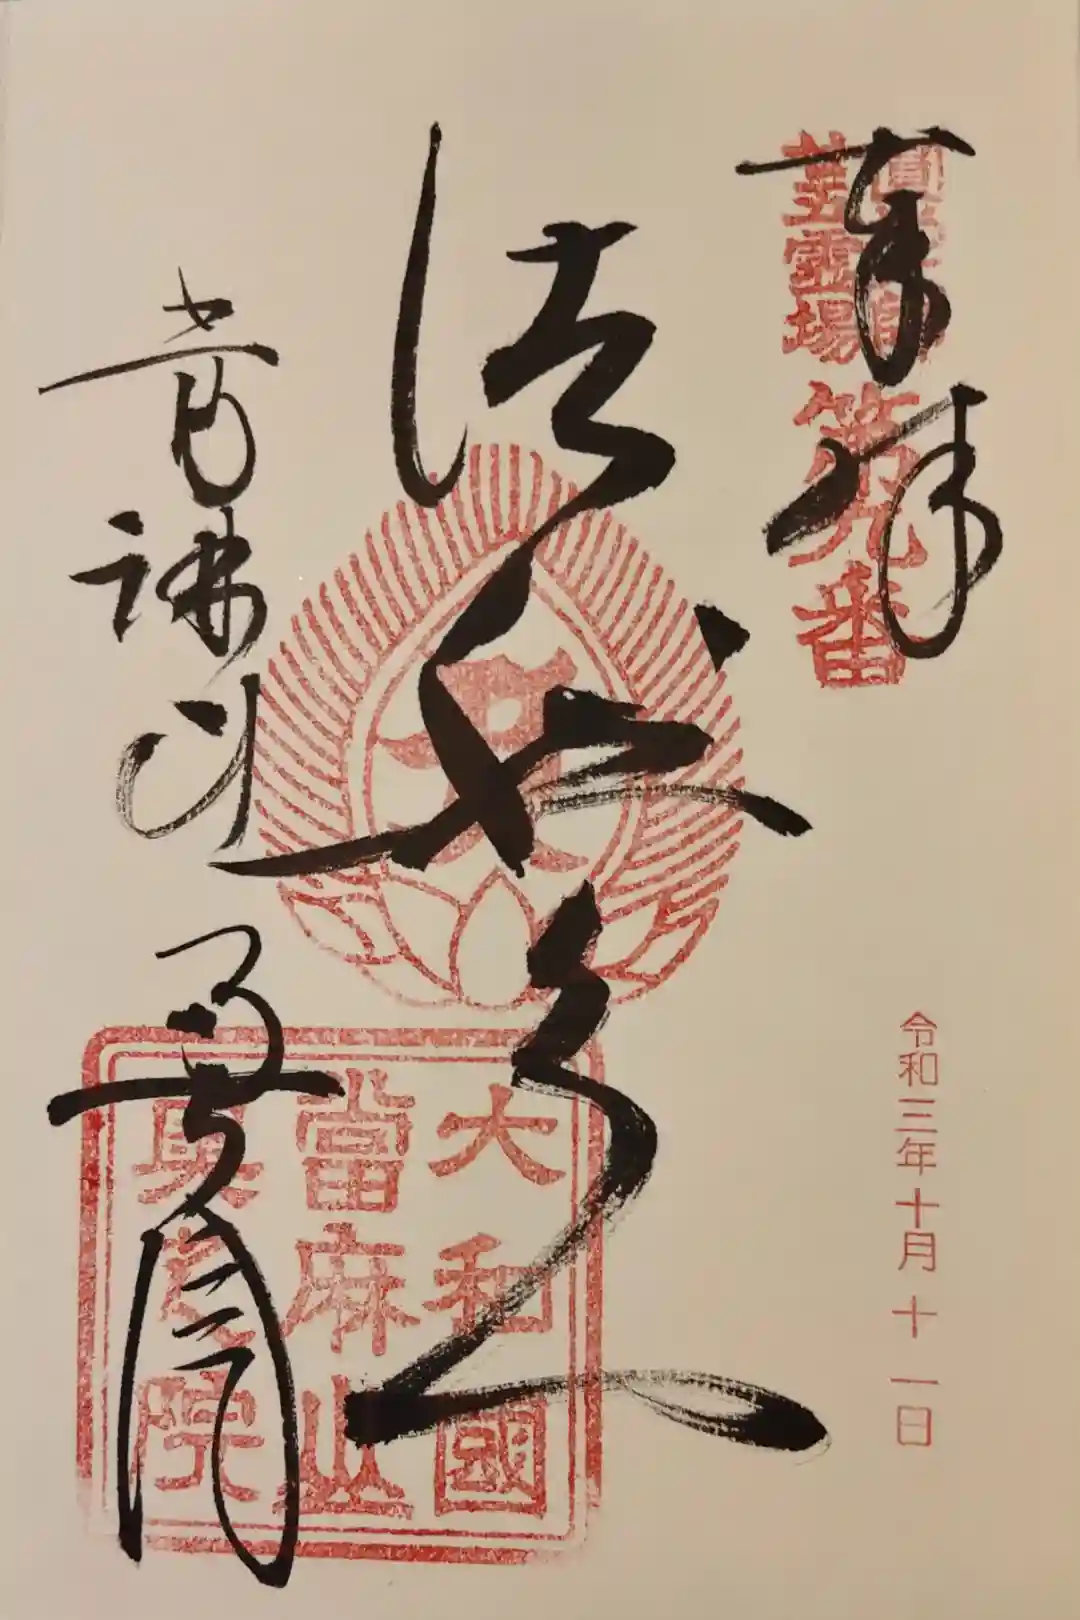 奉拝
霊場
第九番
令和三年十月十一日
法然上人
當麻山
奥院
大和國
當麻山
奥院